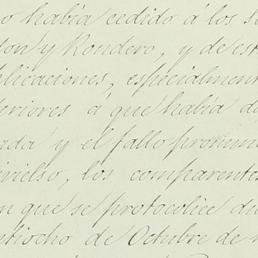 o había cedido á los S
don y Rondero, y de est
plicaciones, especialment
teriores á que había d
ada y el fallo pronun
ivielso, los comparente
n que se protocolice di
ntiocho de Octubre de